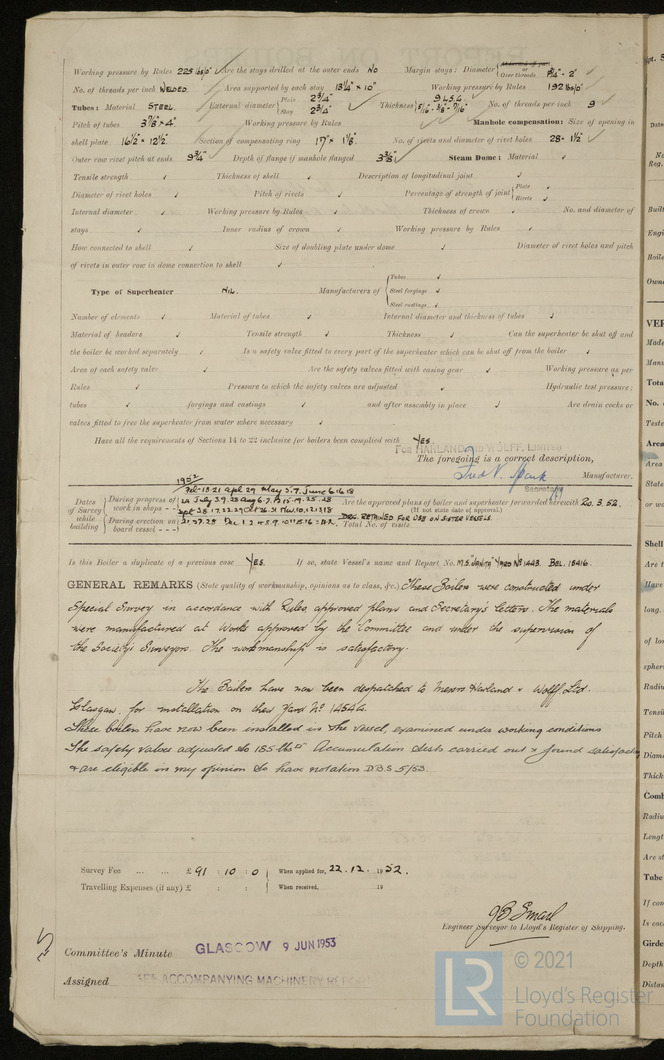 Working pressure by Rules 225 lbs/□" Are the stays drilled at the outer ends No Margin stays: Diameter { or Over threads 2"
No. of threads per inch WELDED. Area supported by each stay 13¼" × 10" Working pressure by Rules 192 lbs/□"
Tubes: Material STEEL. External diameter { Plain 2¾" Stay 2¾" Thickness { 9 L.S.G. 5/16 - 3/8 - 7/16" No. of threads per inch 9
Pitch of tubes 3⅞ × 4" Working pressure by Rules Manhole compensation: Size of opening in
shell plate 16½" × 12½" Section of compensating ring 17" × 1⅛" No. of rivets and diameter of rivet holes 28 - 1½"
Outer row rivet pitch at ends 9¾" Depth of flange if manhole flanged 3⅜" Steam Dome: Material
Tensile strength Thickness of shell Description of longitudinal joint
Diameter of rivet holes Pitch of rivets Percentage of strength of joint { Plate Rivets
Internal diameter Working pressure by Rules Thickness of crown No. and diameter of
stays Inner radius of crown Working pressure by Rules
How connected to shell Size of doubling plate under dome Diameter of rivet holes and pitch
of rivets in outer row in dome connection to shell
Type of Superheater NIL. Manufacturers of { Tubes Steel forgings Steel castings
Number of elements Material of tubes Internal diameter and thickness of tubes
Material of headers Tensile strength Thickness Can the superheater be shut off and
the boiler be worked separately Is a safety valve fitted to every part of the superheater which can be shut off from the boiler
Area of each safety valve Are the safety valves fitted with easing gear Working pressure as per
Rules Pressure to which the safety valves are adjusted Hydraulic test pressure:
tubes forgings and castings and after assembly in place Are drain cocks or
valves fitted to free the superheater from water where necessary
Have all the requirements of Sections 14 to 22 inclusive for boilers been complied with Yes.
FOR HARLAND AND WOLFF, LIMITED
The foregoing is a correct description,
Manufacturer.
Secretary
1952
Dates of Survey while building { During progress of work in shops - - Feb. 15. 21 Apl 29 May 5. 7. June 6. 16. 18
Are the approved plans of boiler and superheater forwarded herewith 20. 3. 52.
(If not state date of approval.)
During erection on board vessel - - - DRG. RETAINED FOR USE ON SISTER VESSELS.
Total No. of visits
Is this Boiler a duplicate of a previous case YES. If so, state Vessel's name and Report No. M.S. "JANITA" YARD Nº 1443. BEL. 15416.
GENERAL REMARKS (State quality of workmanship, opinions as to class, &c.) These Boilers were constructed under
Special Survey in accordance with Rules, approved plans and Secretary's letters. The materials
were manufactured at Works approved by the Committee and under the supervision of
the Society's Surveyors. The workmanship is satisfactory.
The Boilers have now been despatched to Messrs Harland & Wolff Ltd.
Glasgow, for installation on their Yard Nº 1454G.
These boilers have now been installed in the vessel, examined under working conditions
The safety valves adjusted to 185 lbs□" Accumulation tests carried out & found satisfactory
& are eligible in my opinion to have notation D.B.S 5/53.
Survey Fee ... ... £ 91 : 10 : 0 When applied for, 22.12. 1952.
Travelling Expenses (if any) £ : : When received, 19
J B Smail
Engineer Surveyor to Lloyd's Register of Shipping.
Committee's Minute GLASGOW 9 JUN 1953
Assigned SEE ACCOMPANYING MACHINERY REPORT
LR © 2021
Lloyd's Register
Foundation